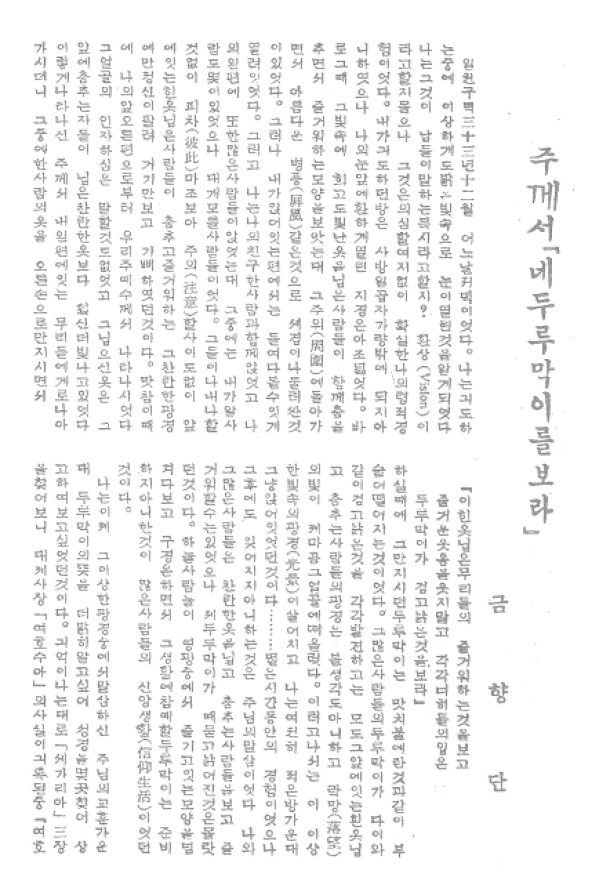 주께서「네두루막이를보라」
금향단
일천구백三十三년十二월 어느날저녁이엇다。나는긔도하
는중에 이상하게도밝은빛속으로 눈이열린것을알게되엿다
나는그것이 남들이말하는묵시라고할지? 환상(Vision)이
라고할지몰으나 그것은의심할여지없이 확실한나의령적경
험이엇다。내가긔도하던방은 사방일곱자가량밖에 되지아
니하엿으나 나의눈앞에환하게열린 지경은아조넓엇다。바
로그때 그빛속에 희고도빛난옷을닙은사람들이 함께춤을
추면서 즐거워하는모양을보앗는대 그주위(周圍)에돌아가
면서 아름다운 병풍(屛風)같은것으로 세겹이나둘러싼것
이있엇다。그러나 내가앉어잇는편에서는 들여다볼수잇게
열려잇엇다。그러고 나는나의친구한사람과함께앉엇고 나
의왼편에 또한많은사람들이앉엇는대 그중에는 내가알사
람도몇이있엇으나 대개모를사람들이엇다。그들이나내나할
것없이 피차(彼此)마조보아 주의(注意)할사이도없이 앞
에잇는흰옷닙은사람들이 춤추고즐거워하는 그찬란한광경
에만정신이팔려 거기만보고 기뻐하엿던것이다。맛참이때
에 나의앞오른편으로부터 우리주예수께서 나타나시엇다
그얼골의 인자하심은 말할것도없엇고 그닙으신옷은 그
앞에춤추는자들이 닙은찬란한옷보다 훨신더빛나고있엇다
이렇게나타나신 주께서 내왼편에잇는 무리들에게로나아
가시더니 그중에한사람의옷을 오른손으로만지시면서
『이흰옷닙은무리들의 즐거워하는것을보고
즐거운웃음을웃지말고 각각너히들의입은
두루막이가 검고낡은것을보라』
하실때에 그만지시던두루막이는 맛치불에탄것과같이 부
슬어떨어지는것이엇다。그많은사람들의두루막이가 다이와
같이검고낡은것을 각각발견하고는 모도그앞에잇는흰옷닙
고 춤추는사람들의광경은 볼생각도아니하고 락망(落望)
의빛이 캄캄하게그얼골에떠올랏다。이러고나서는 이 이상
한빛속의광경(光景)이살어지고 나는여전히 적은방가운대
그냥앉어잇엇던것이다………짧은시간동안의 경험이엇으나
그후에도 잊어지지아니하는것은 주님의말삼이엇다 나와
그많은사람들은 찬란한옷을닙고 춤추는사람들을보고 즐
거워할수는있엇으나 제두루막이가 때묻고낡어진것은몰랏
던것이다。하늘사람들이 영광중에서 즐기고잇는모양을넘
겨다보고 구경은하면서 그생활에참예할두루막이는 준비
하지아니한것이 많은사람들의 신앙생활(信仰生活)이엇던
것이다。
나는이제 그이상한광경중에서말삼하신 주님의교훈가운
대 두루막이의뜻을 더밝히알고싶어 성경을몇곳찾어 상
고하여보고싶엇던것이다。긔억이나는대로「스가리아」三장
을찾어보니 대제사장「여호수아」의사실이긔록된중「여호